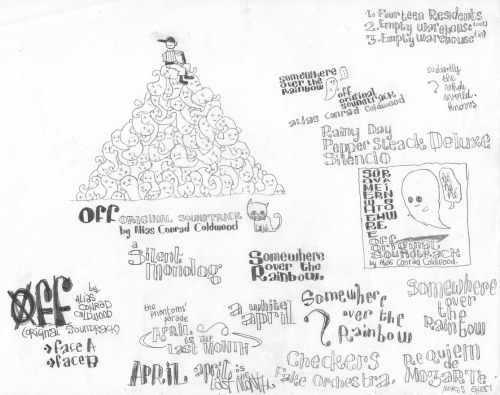 1. Fourteen Residents
2. Empty warehouse (out)
3. Empty warehouse (in)
Somewhere
over the
Rainbow
off
original
soundtrack
alias Conrad Coldwood
suddently
the
whole
world
knows
Rainy Day
Pepper Steack Deluxe
Silencio
Off ORIGINAL SOUNDTRACK
by Alias Conrad Coldwood
Off
original
Soundtrack
by Alias Conrad Coldwood.
a
Silent
Monolog
Somewhere
over the
Rainbow.
Off
by
Alias
Conrad
Coldwood
(original Soundtrack)
→ face A
→ face B
the
phantoms'
parade
April
is the
Last Month
April
april is the
last month.
a white
april
Somewhere
over the
Rainbow
Somewhere
over
the
Rainbow
Checkers
Fake Orchestra.
Requiem
de
Mogarte